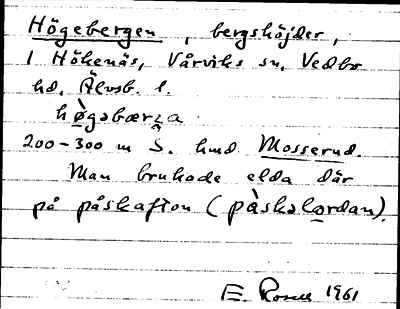 Högebergen, bergshöjder,
1 Hökenäs, Vårviks sn, Vedbo
hd, Älvsb. l.
hø̀gəbærza
200-300 m S. hmd Mosserud.
Man brukade elda där
på påskafton (pàskəlordan).
E. 1961